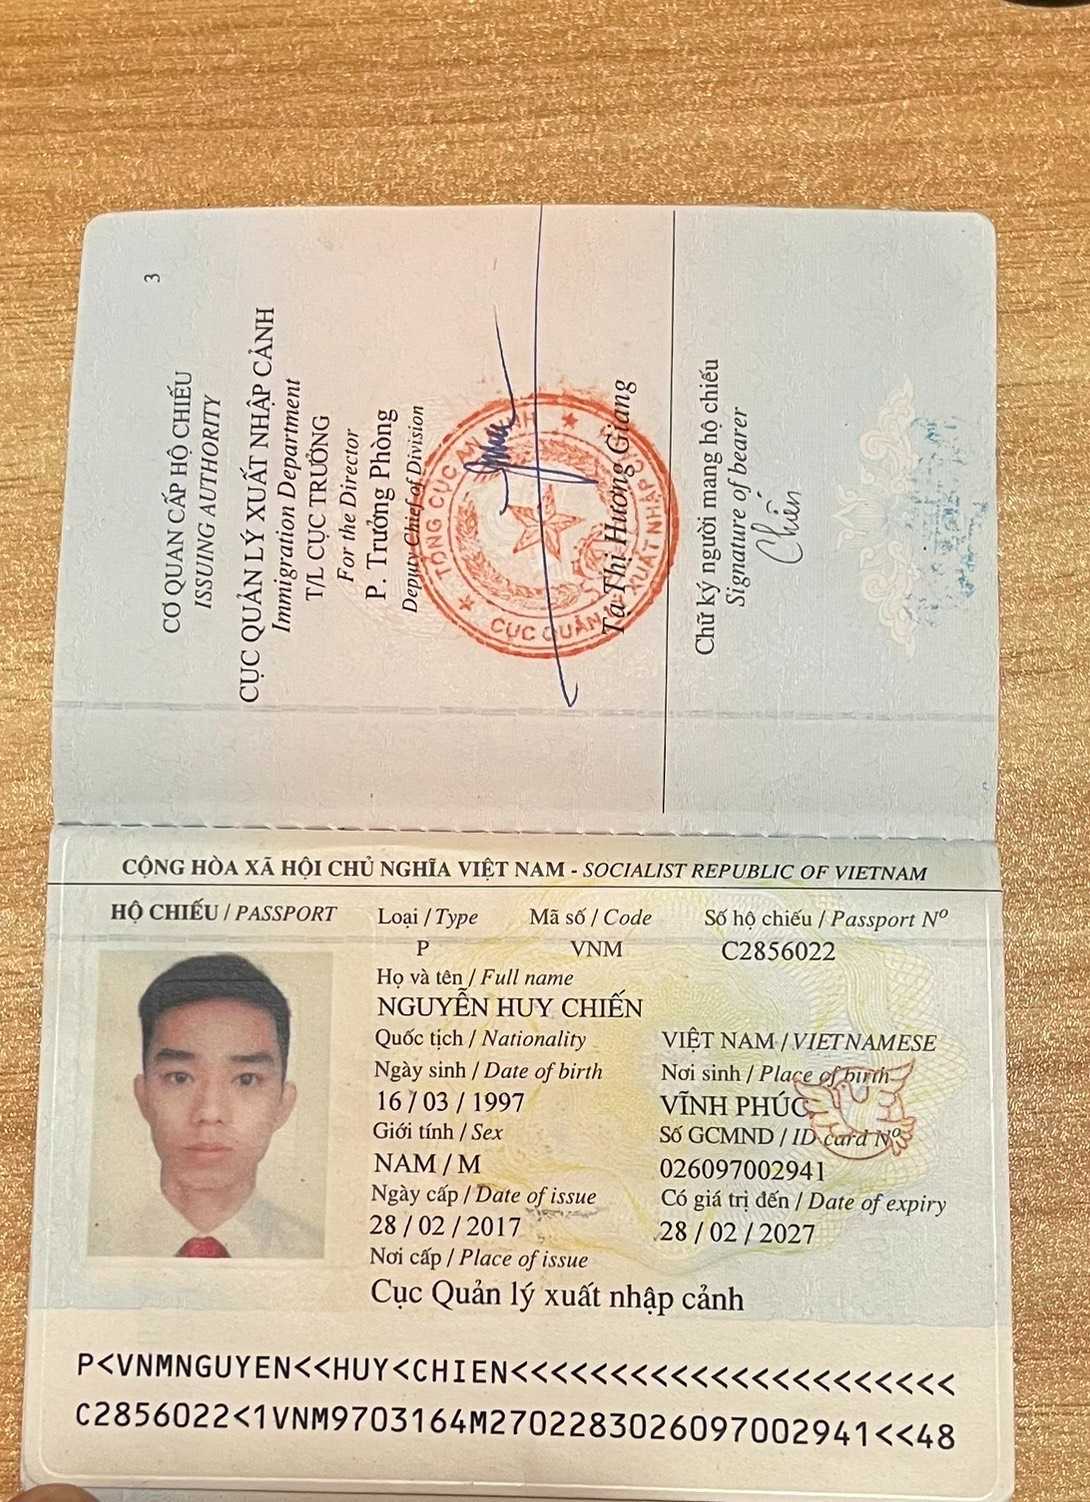 3
CƠ QUAN CẤP HỘ CHIẾU
ISSUING AUTHORITY
CỤC QUẢN LÝ XUẤT NHẬP CẢNH
Immigration Department
T/L CỤC TRƯỞNG
For the Director
P. Trưởng Phòng
Deputy Chief of Division
TỔNG CỤC AN NINH
CỤC QUẢN LÝ XUẤT NHẬP CẢNH
Tạ Thị Hương Giang
Chữ ký người mang hộ chiếu
Signature of bearer
Chiến
CỘNG HÒA XÃ HỘI CHỦ NGHĨA VIỆT NAM - SOCIALIST REPUBLIC OF VIETNAM
HỘ CHIẾU / PASSPORT Loại / Type Mã số / Code Số hộ chiếu / Passport Nº
P VNM C2856022
Họ và tên / Full name
NGUYỄN HUY CHIẾN
Quốc tịch / Nationality VIỆT NAM / VIETNAMESE
Ngày sinh / Date of birth Nơi sinh / Place of birth
16 / 03 / 1997 VĨNH PHÚC
Giới tính / Sex Số GCMND / ID card Nº
NAM / M 026097002941
Ngày cấp / Date of issue Có giá trị đến / Date of expiry
28 / 02 / 2017 28 / 02 / 2027
Nơi cấp / Place of issue
Cục Quản lý xuất nhập cảnh
P<VNMNGUYEN<<HUY<CHIEN<<<<<<<<<<<<<<<<<<<<<<
C2856022<1VNM9703164M2702283026097002941<<48